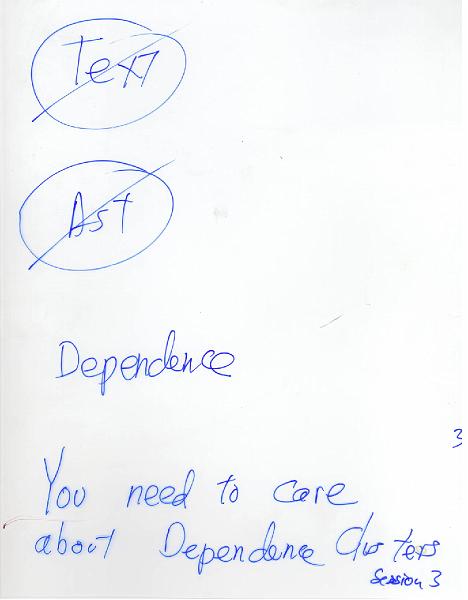 Text
Ast
Dependence
3
You need to care
about Dependence Clusters
Session 3